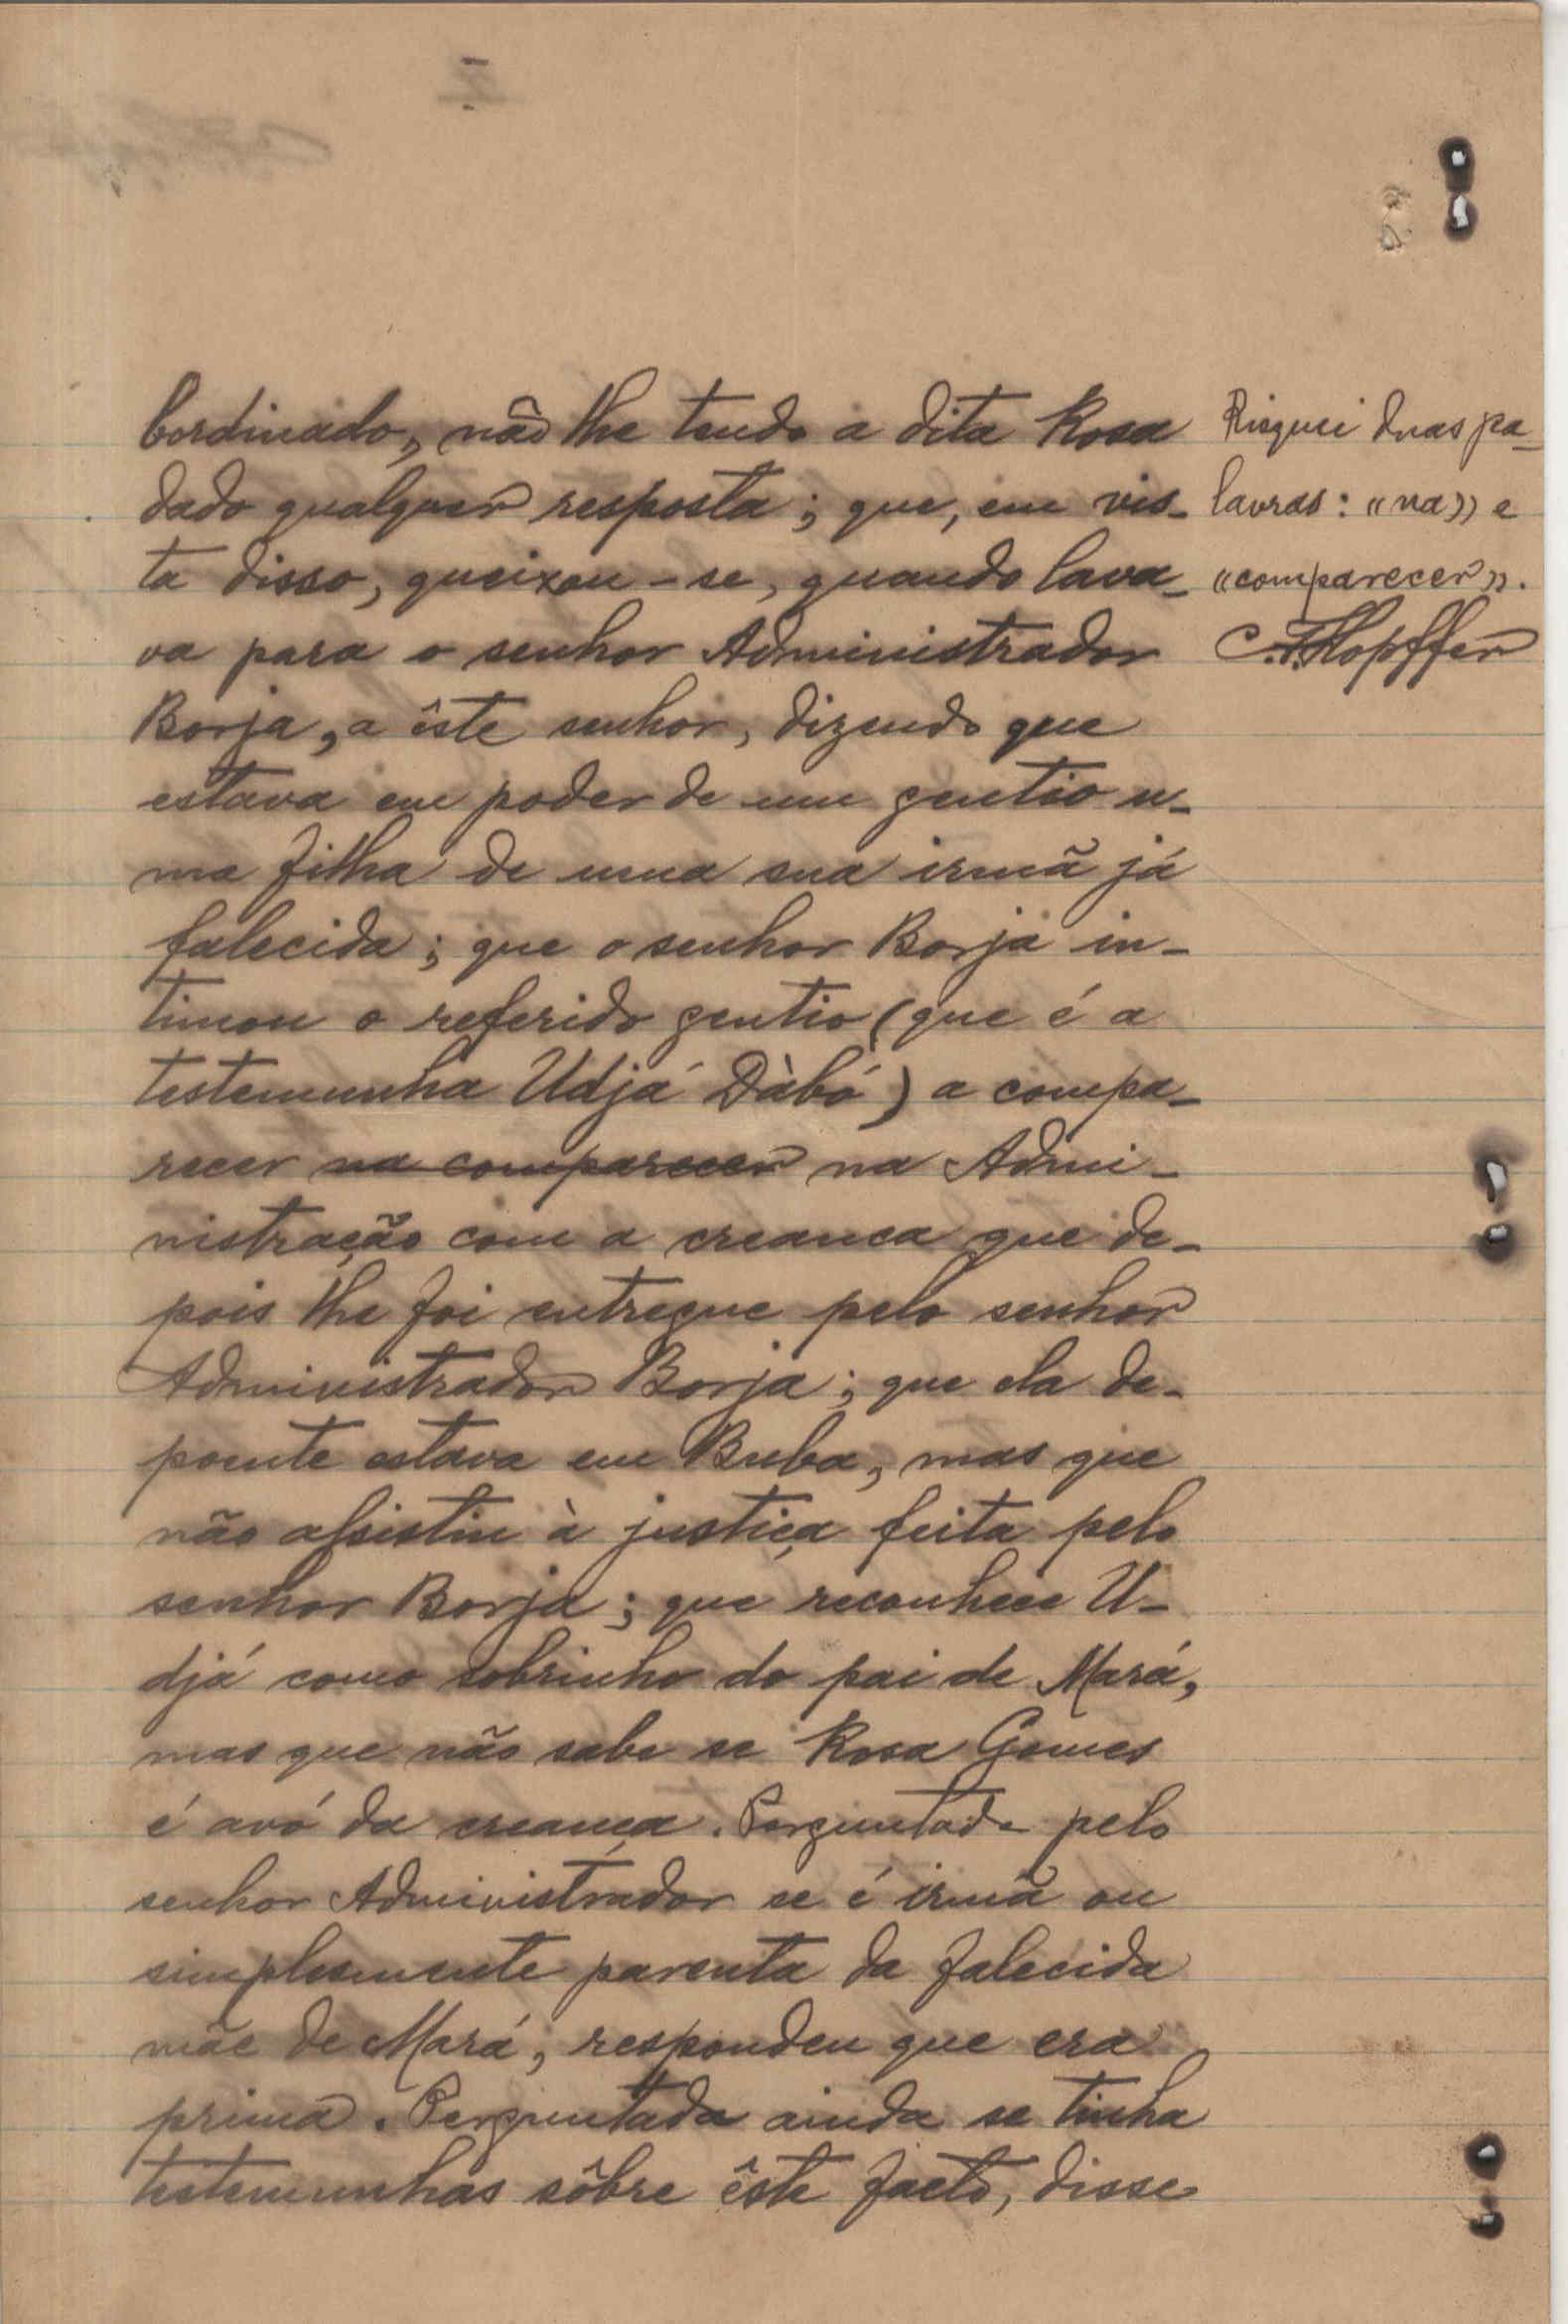 bordinado, não lhe tendo a dita Rosa
dado qualquer resposta; que, em vis-
ta disso, queixou-se, quando lava-
va para o senhor Administrador
Borja, a êste senhor, dizendo que
estava em poder de um gentio u-
ma filha de uma sua irmã já
falecida; que o senhor Borja in-
timou o referido gentio (que é a
testemunha Udjá Dàbó) a compa-
recer na comparecer na Admi-
nistração com a creanca que de-
pois lhe foi entregue pelo senhor
Administrador Borja; que ela de-
poente estava em Buba, mas que
não assistiu à justiça feita pelo
senhor Borja; que reconhece U-
djá como sobrinho do pai de Mará,
mas que não sabe se Rosa Gomes
é avó da creança. Perguntada pelo
senhor Administrador se é irmã ou
simplesmente parenta da falecida
mãe de Mará, respondeu que era
prima. Perguntada ainda se tinha
testemunhas sôbre êste facto, disse
Risquei duas pa-
lavras: «na» e
«comparecer».
C. F. Hopffer